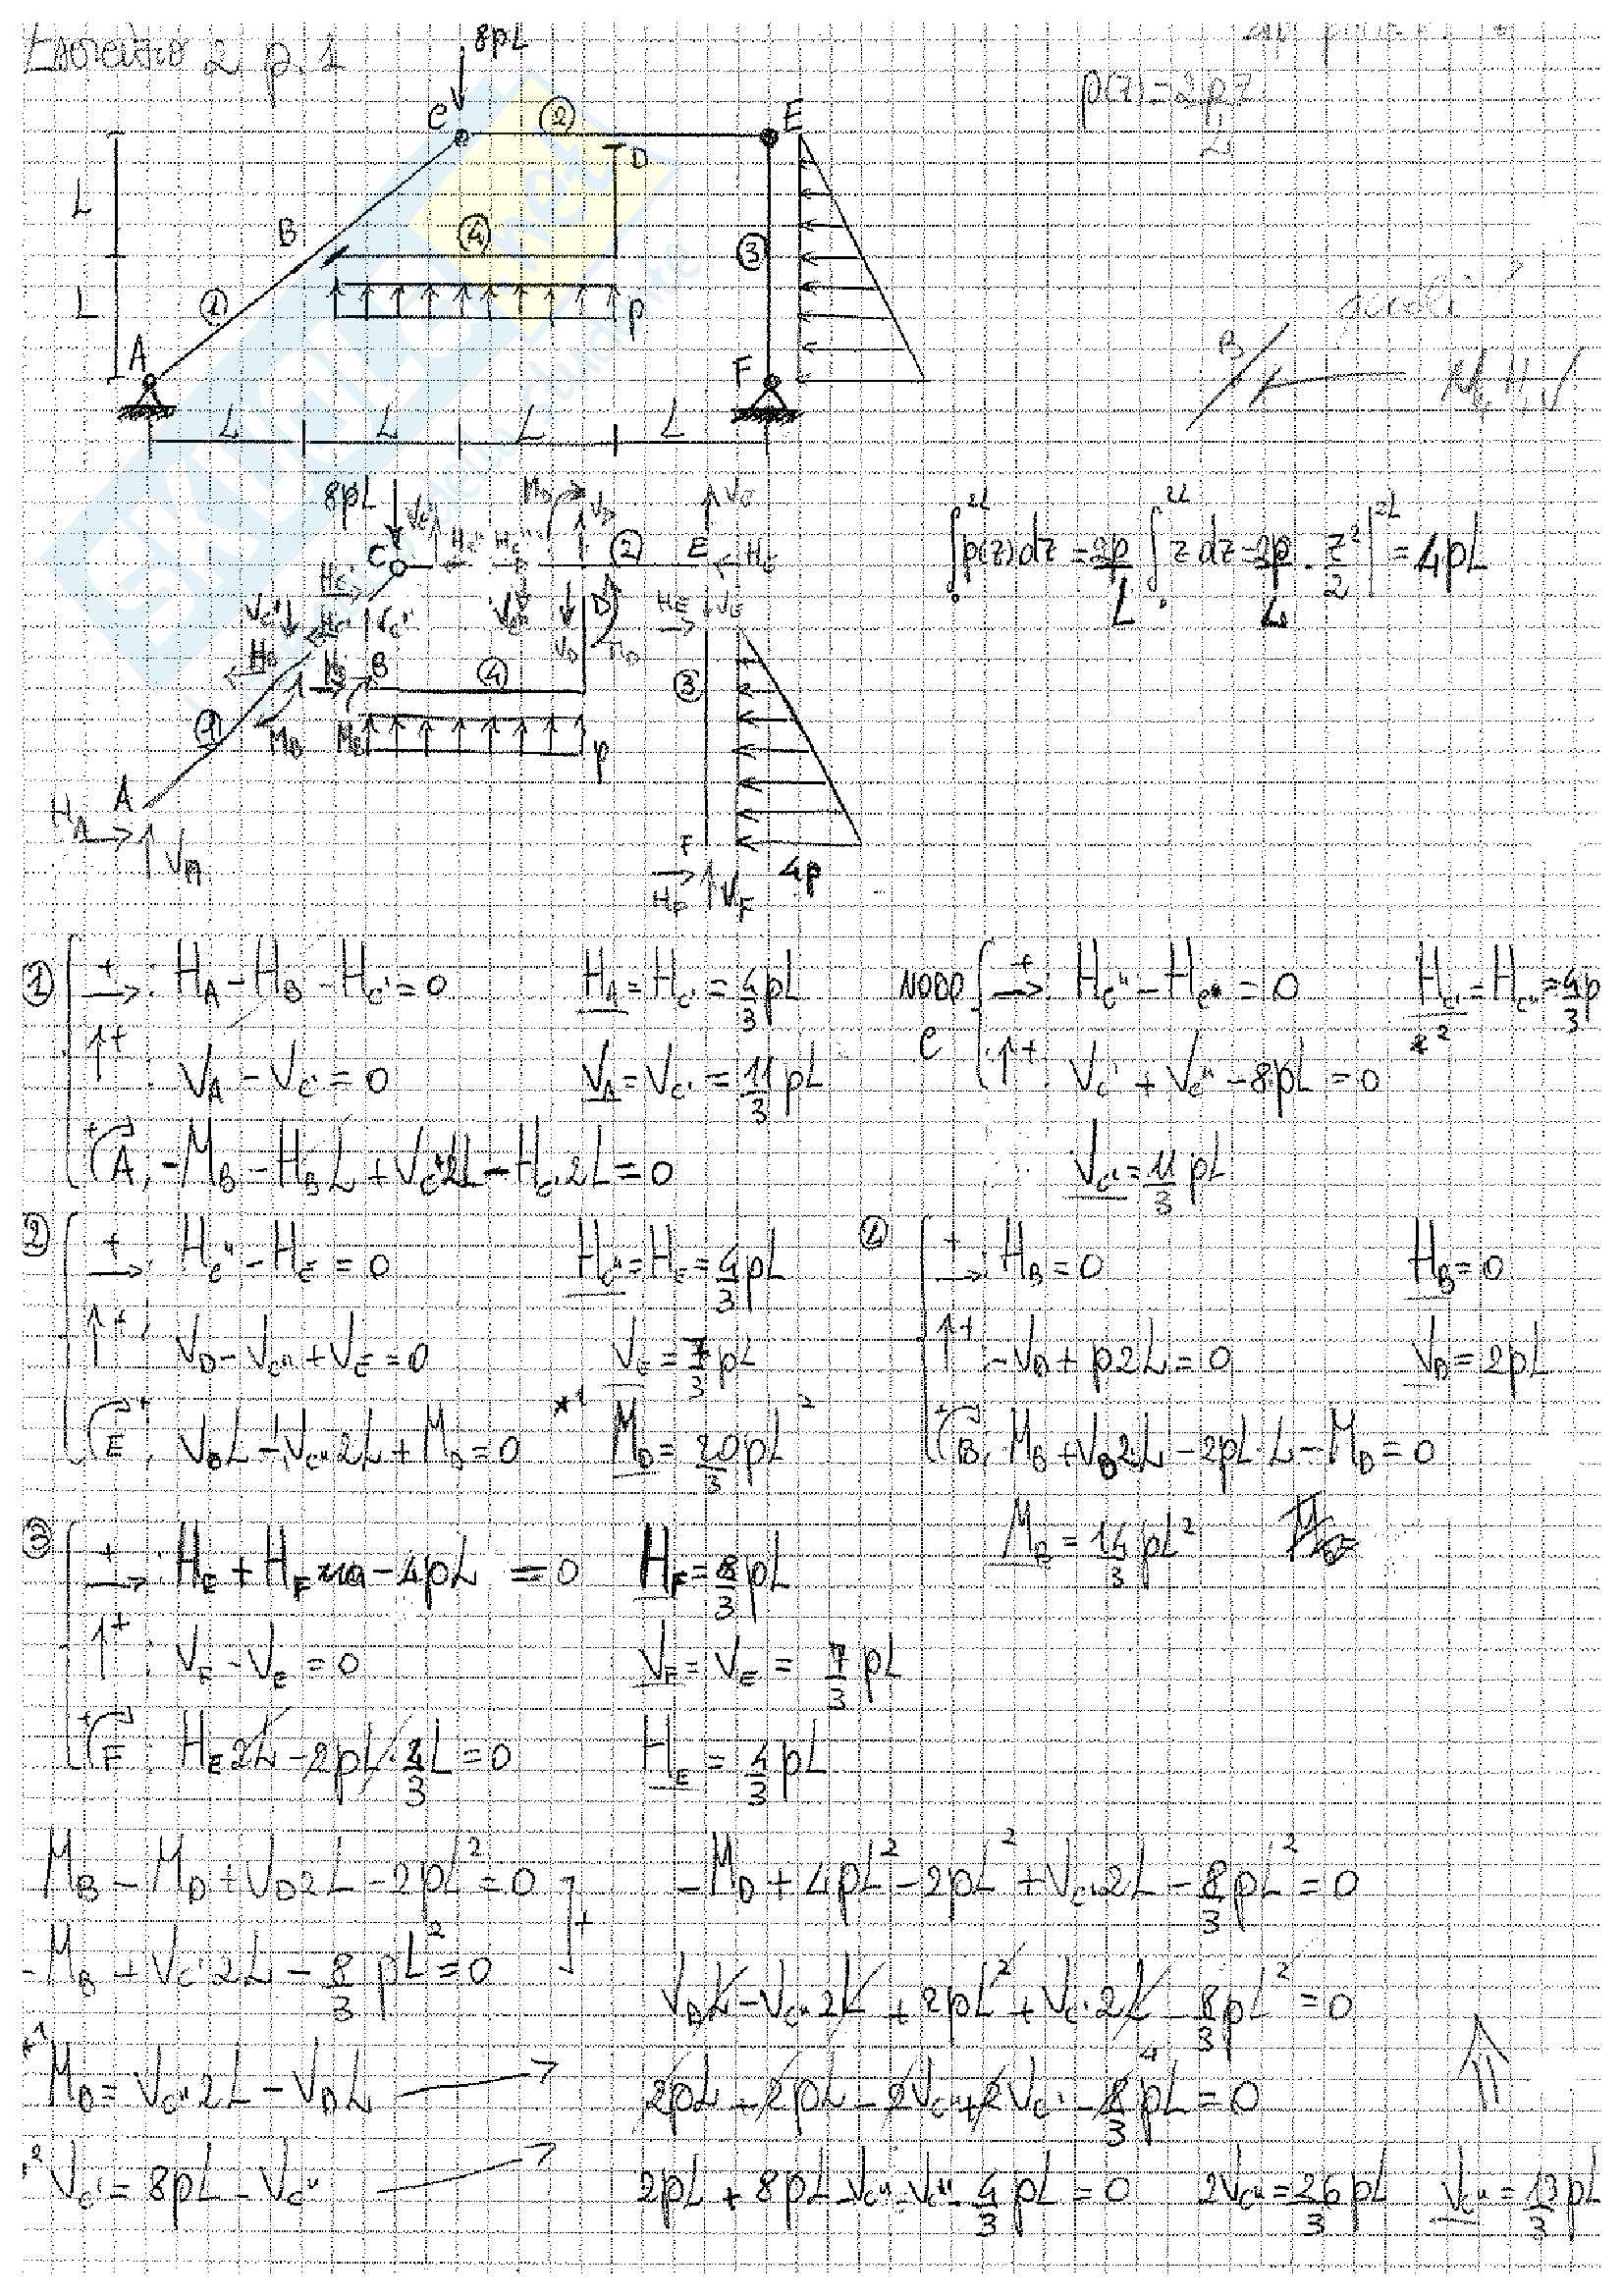 Esercizio 2 p. 1
8pL
p(z) = 2p z
L
C
②
E
D
L
B
④
③
①
L
p
A
F
B
M, H, V
L L L L
8pL V_C' M_D V_D V_E
C H_C' H_C'' ② E H_E
H_C' V_C' V_C'' D H_E V_E
V_C' H_C' V_D M_D
H_B H_B B ④ ③
① M_B M_B p
A
H_A V_A
F
H_F V_F 4p
∫₀^2L p(z) dz = 2p/L ∫₀^2L z dz = 2p/L · z²/2 |^2L = 4pL
① →+ : H_A - H_B - H_C' = 0 H_A = H_C' = 4/3 pL
↑+ : V_A - V_C' = 0 V_A = V_C' = 11/3 pL
A; -M_B - H_B L + V_C' 2L - H_C' 2L = 0
NODO C →+ : H_C'' - H_C' = 0 H_C' = H_C'' = 4/3 p
*2
↑+ : V_C' + V_C'' - 8pL = 0
V_C' = 11/3 pL
② →+ : H_C'' - H_E = 0 H_C'' = H_E = 4/3 pL
↑+ : V_D - V_C'' + V_E = 0 V_E = 7/3 pL
E; V_D L - V_C'' 2L + M_D = 0 *1 M_D = 20/3 pL²
④ →+ : H_B = 0 H_B = 0
↑+ -V_D + p2L = 0 V_D = 2pL
B; M_B + V_D 2L - 2pL·L - M_D = 0
M_B = 14/3 pL²
③ →+ : H_E + H_F - 4pL = 0 H_F = 8/3 pL
↑+ : V_F - V_E = 0 V_F = V_E = 7/3 pL
F: H_E 2L - 2pL · 4/3 L = 0 H_E = 4/3 pL
M_B - M_D + V_D 2L - 2pL² = 0
+
-M_B + V_C' 2L - 8/3 pL² = 0
-M_D + 4pL² - 2pL² + V_C' 2L - 8/3 pL² = 0
V_D L - V_C'' 2L + 2pL² + V_C' 2L - 8/3 pL² = 0
*1 M_D = V_C'' 2L - V_D L → 2pL + 2pL - 2V_C'' + 2V_C' - 8/3 pL = 0
4
*2 V_C' = 8pL - V_C'' → 2pL + 8pL - V_C'' - V_C'' - 4/3 pL = 0 2V_C'' = 26/3 pL V_C'' = 13/3 pL